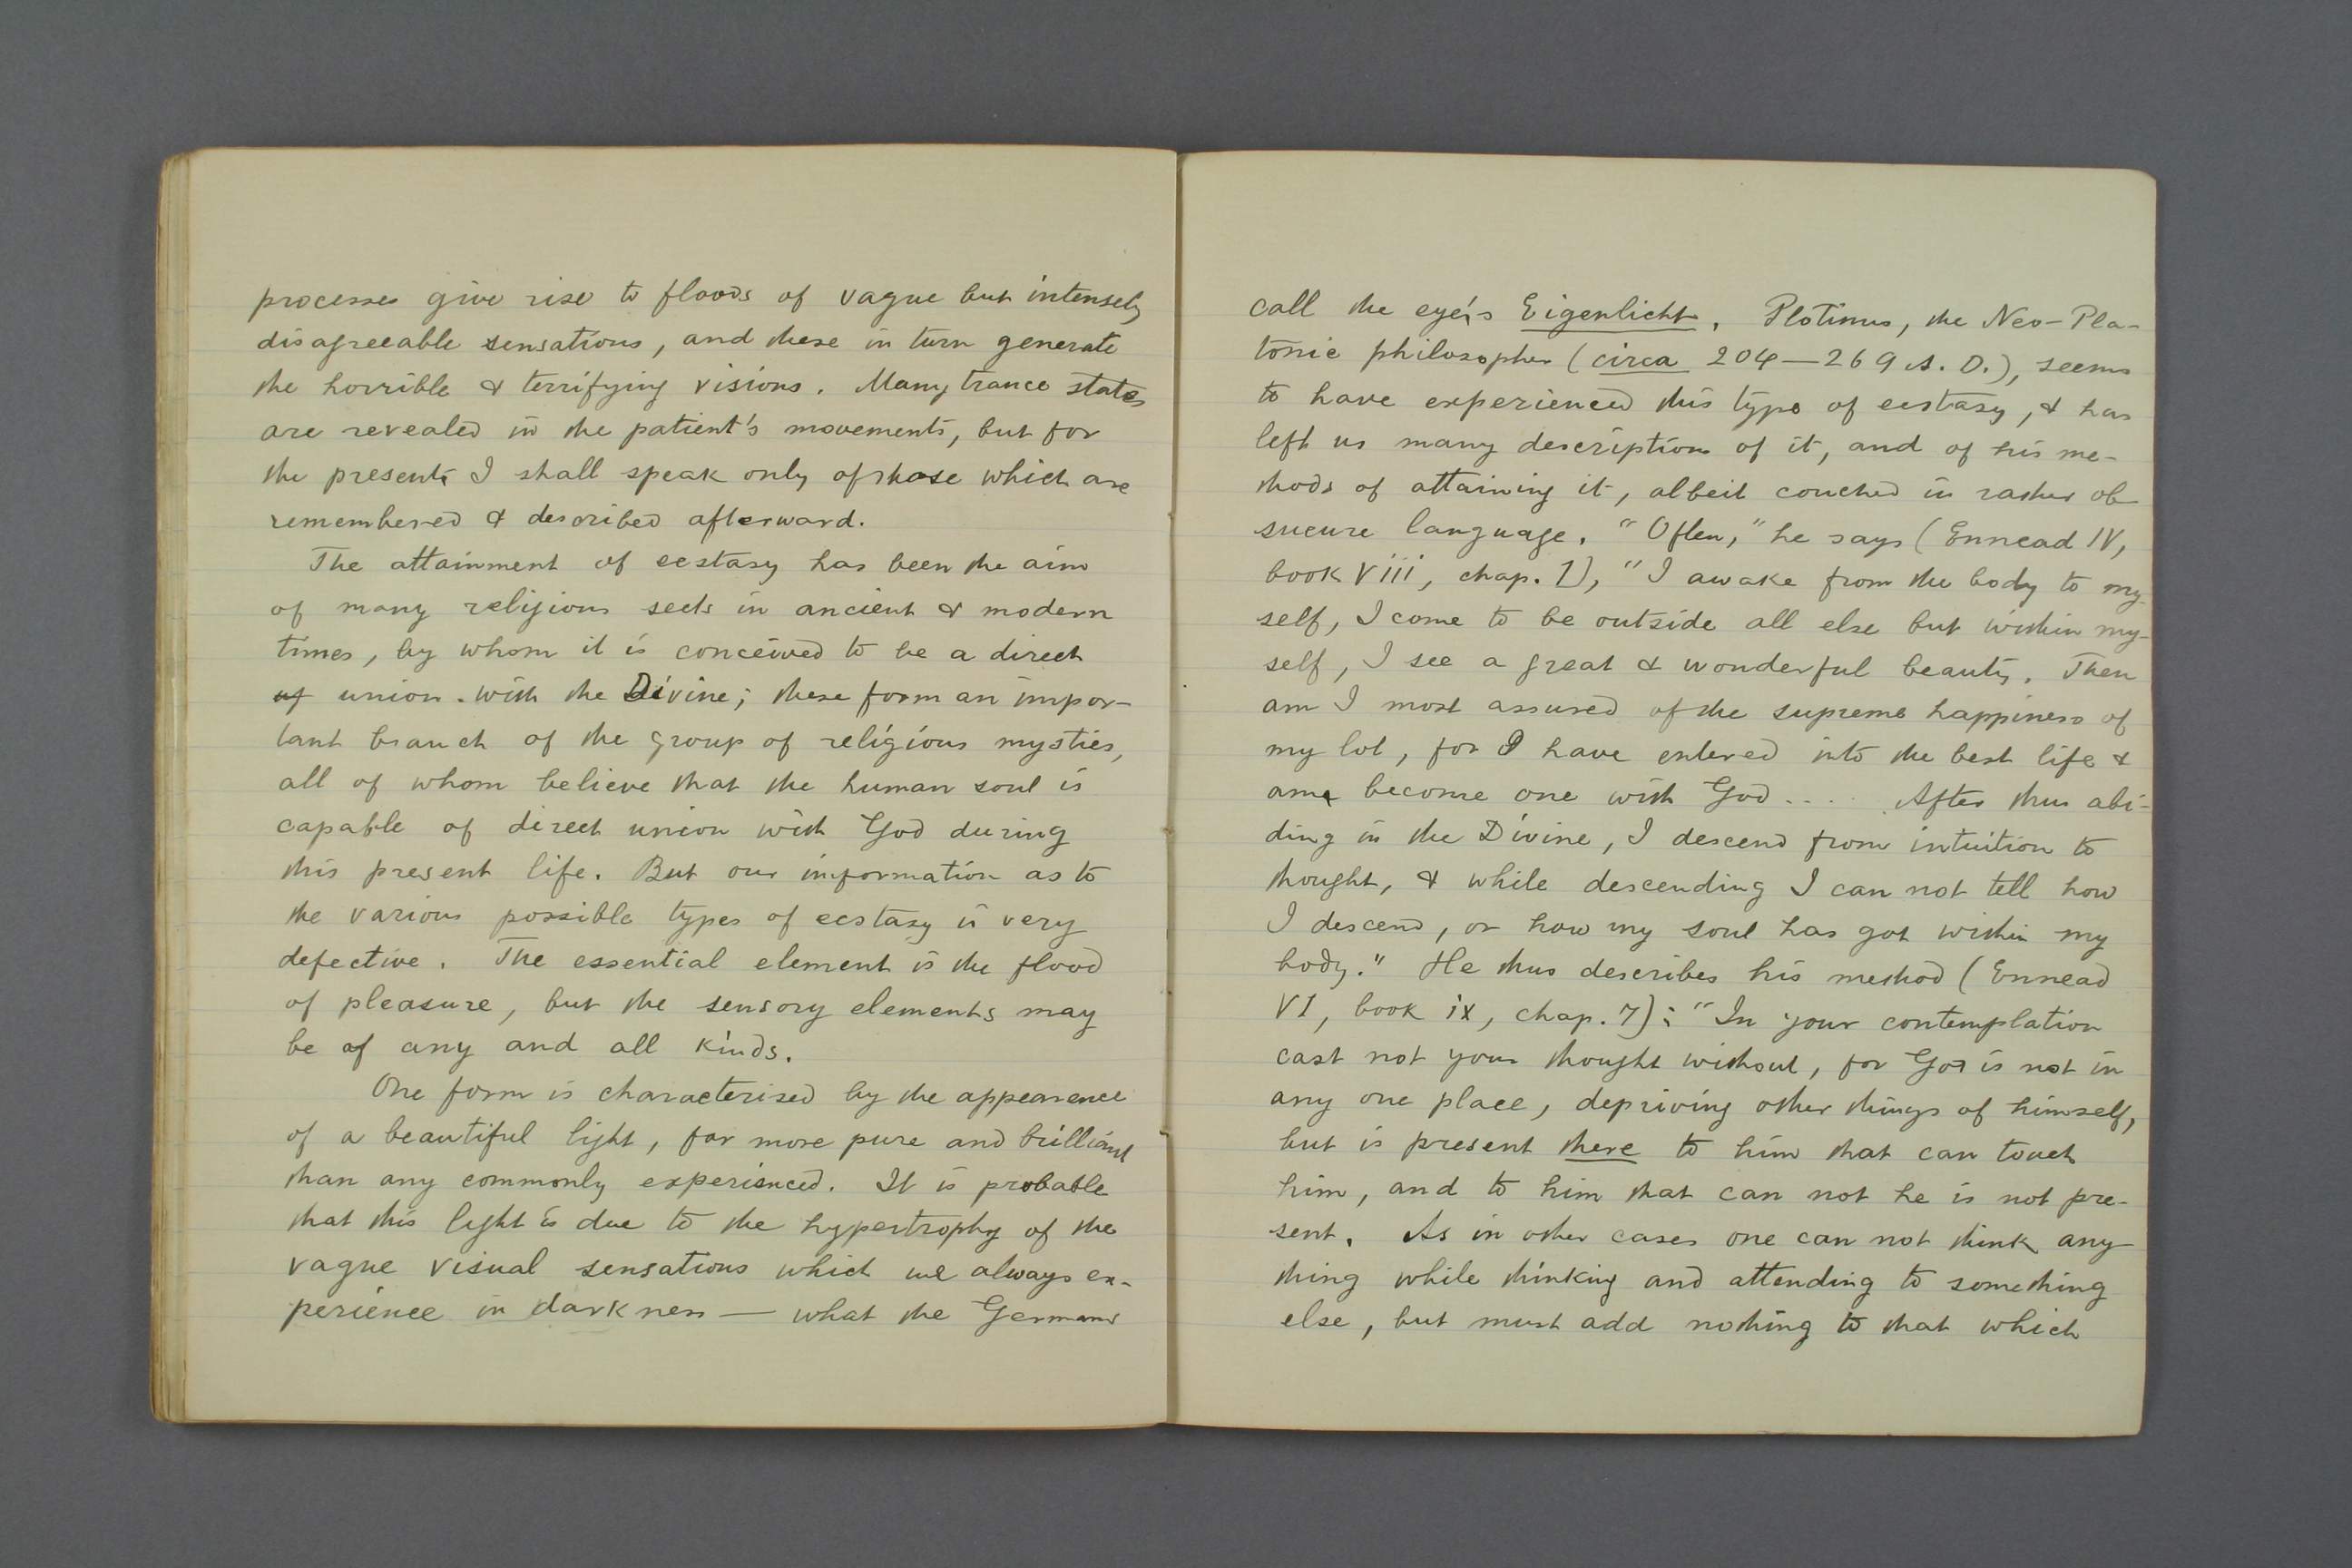 processes give rise to floods of vague but intensely
disagreeable sensations, and these in turn generate
the horrible & terrifying visions. Many trance states
are revealed in the patient's movements, but for
the present I shall speak only of those which are
remembered & described afterward.
The attainment of ecstasy has been the aim
of many religious sects in ancient & modern
times, by whom it is conceived to be a direct
of union with the Divine; these form an impor-
tant branch of the group of religious mystics,
all of whom believe that the human soul is
capable of direct union with God during
this present life. But our information as to
the various possible types of ecstasy is very
defective. The essential element is the flood
of pleasure, but the sensory elements may
be of any and all kinds.
One form is characterised by the appearence
of a beautiful light, far more pure and brilliant
than any commonly experienced. It is probable
that this light is due to the hypertrophy of the
vague visual sensations which we always ex-
perience in darkness — what the Germans
call the eye's Eigenlicht. Plotinus, the Neo-Pla-
tonic philosopher (circa 204—269 A. D.), seems
to have experienced this type of ecstasy, & has
left us many descriptions of it, and of his me-
thods of attaining it, albeit couched in rather ob
sucure language. "Often," he says (Ennead IV,
book viii, chap. 1), "I awake from the body to my-
self, I come to be outside all else but within my-
self, I see a great & wonderful beauty. Then
am I most assured of the supreme happiness of
my lot, for I have entered into the best life &
am become one with God .... After thus abi-
ding in the Divine, I descend from intuition to
thought, & while descending I can not tell how
I descend, or how my soul has got within my
body." He thus describes his method (Ennead
VI, book ix, chap. 7): "In your contemplation
cast not your thought without, for God is not in
any one place, depriving other things of himself,
but is present there to him that can touch
him, and to him that can not he is not pre-
sent. As in other cases one can not think any-
thing while thinking and attending to something
else, but must add nothing to that which